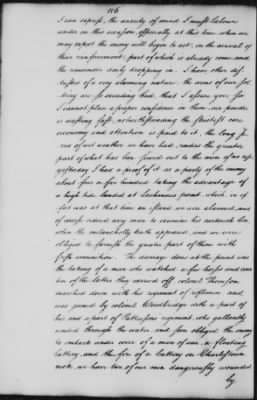 116
I can express, the anxiety of mind I must labour
under on this occasion, especially at this time, when we
may expect the enemy will begin to act, on the arrival of
their reinforcement, part of which is already come and
the remainder daily dropping in. I have other dis-
tresses of a very alarming nature, the arms of our sol-
diery are so exceeding bad, that I assure you, sir
I cannot place a proper confidence in them, our powder
is wasting fast, notwithstanding the strictest care
economy and attention is paid to it, the long
of wet weather we have had, renders the greater
part of what has been served out to the men of no use
yesterday I had a proof of it, as a party of the enemy
about four or five hundred, taking the advantage of
a high tide landed at Lechmere's point, which in ef-
fect was at that time an Island, we were alarmed, and
of course ordered every man to examine his cartouch box
when the melancholy truth appeared, and we were
obliged to furnish the greater part of them with
fresh ammunition. The damage done at the point was
the taking of a man who watched a few horses and cows
ten of the latter they carried off, colonel Thompson
marched down with his regiment of riflemen and
was joined by colonel Woodbridge with a part of
his and a part of Patterson's regiment, who gallantly
waded through the water, and soon obliged the enemy
to embark under cover of a man of war, a floating
battery, and the fire of a battery on Charlestown
neck, we have two of our men dangerously wounded
by